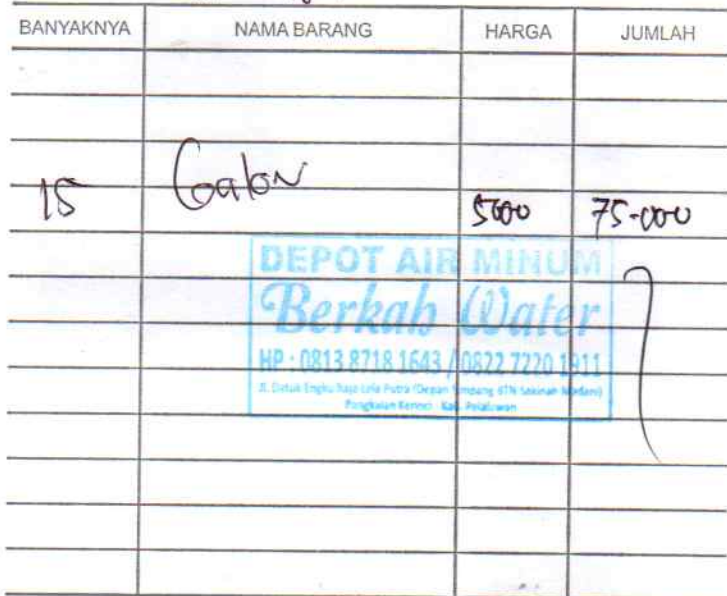 BANYAKNYA NAMA BARANG HARGA JUMLAH
15 Galon 5000 75-000
DEPOT AIR MINUM
Berkah Water
HP : 0813 8718 1643 / 0822 7220 1911
Jl. Datuk Engku Raja Lela Putra (Depan Simpang BTN Sakinah Madani)
Pangkalan Kerinci - Kab. Pelalawan